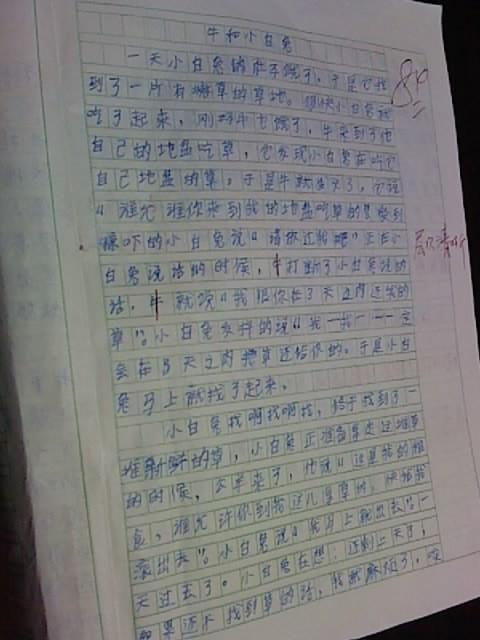 牛和小白兔
一天小白兔的肚子饿了,于是它找
到了一片有嫩草的草地。很快小白兔就
吃了起来,刚好牛也饿了,牛来到了他
自己的地盘吃草,它发现小白兔在吃它
自己地盘的草,于是牛就生气了,它说
“谁允谁你来到我的地盘吃草的
吓的小白兔说“请你还我吧”正在小
白兔说话的时候,牛打断了小白兔说的
话,牛就说“我限你在3天之内还我的
草”。小白兔发抖的说“我一我一一一定
会在3天之内把草还给你的。于是小白
兔马上就找了起来。
小白兔我啊找啊找,终于找到了一
堆新鲜的草,小白兔正准备拿走这堆草
的时候,羊来了,他说“这是我的粮
食,谁允许你到我这儿拿草的,快给我
滚出去”。小白兔说“我马上就出去”一
天过去了。小白兔在想:还剩上天了,
如果还不找到草的话,我就麻烦了,
84
层次清晰